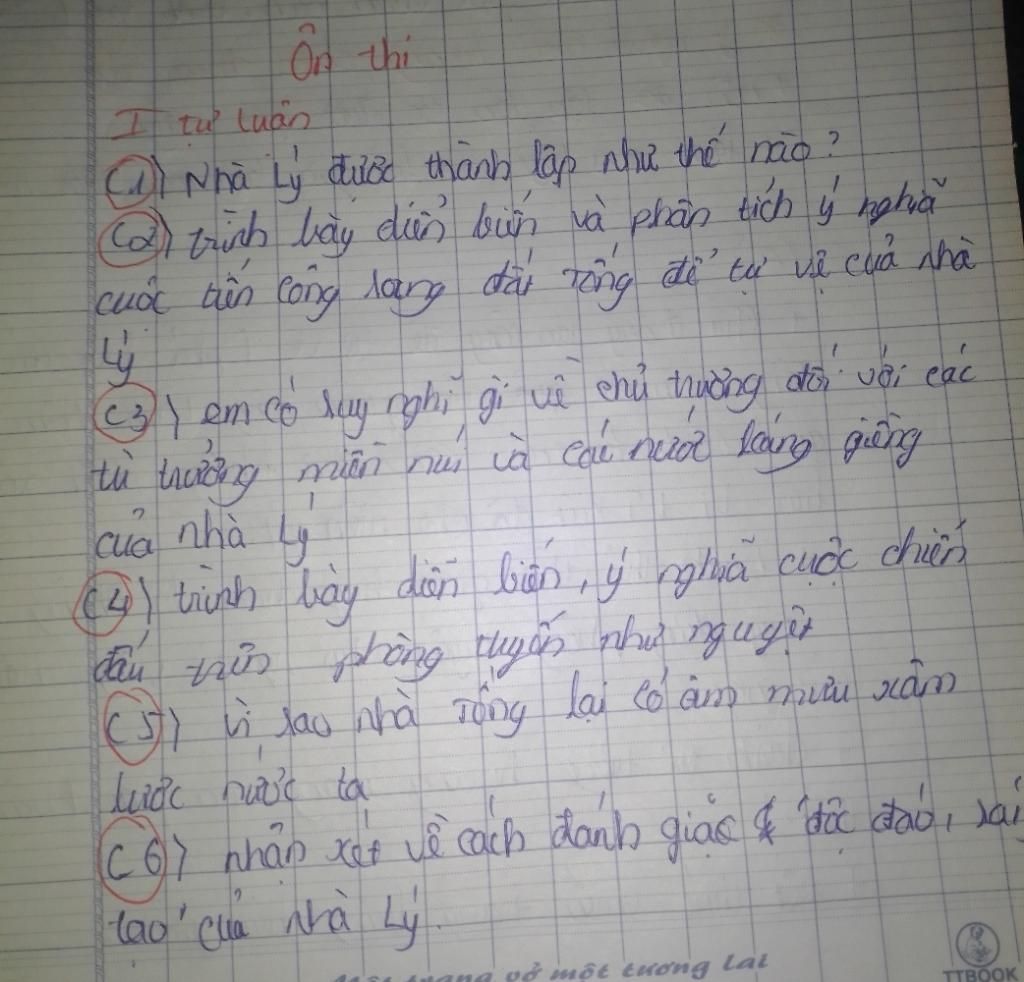 Ôn thi
I tự luận
C1) Nhà Lý được thành lập như thế nào?
C2) trình bày diễn biến và phân tích ý nghĩa
cuộc tiến công sang đất Tống để tự vệ của nhà
Lý
C3) em có suy nghĩ gì về chủ trương đối với các
tù trưởng miền núi và các nước láng giềng
của nhà Lý
C4) trình bày diễn biến, ý nghĩa cuộc chiến
đấu trên phòng tuyến như nguyệt
C5) vì sao nhà Tống lại có âm mưu xâm
lược nước ta
C6) nhận xét về cách đánh giặc " độc đáo, sáng
tạo" của nhà Lý.
vở một tương lai
TTBOOK